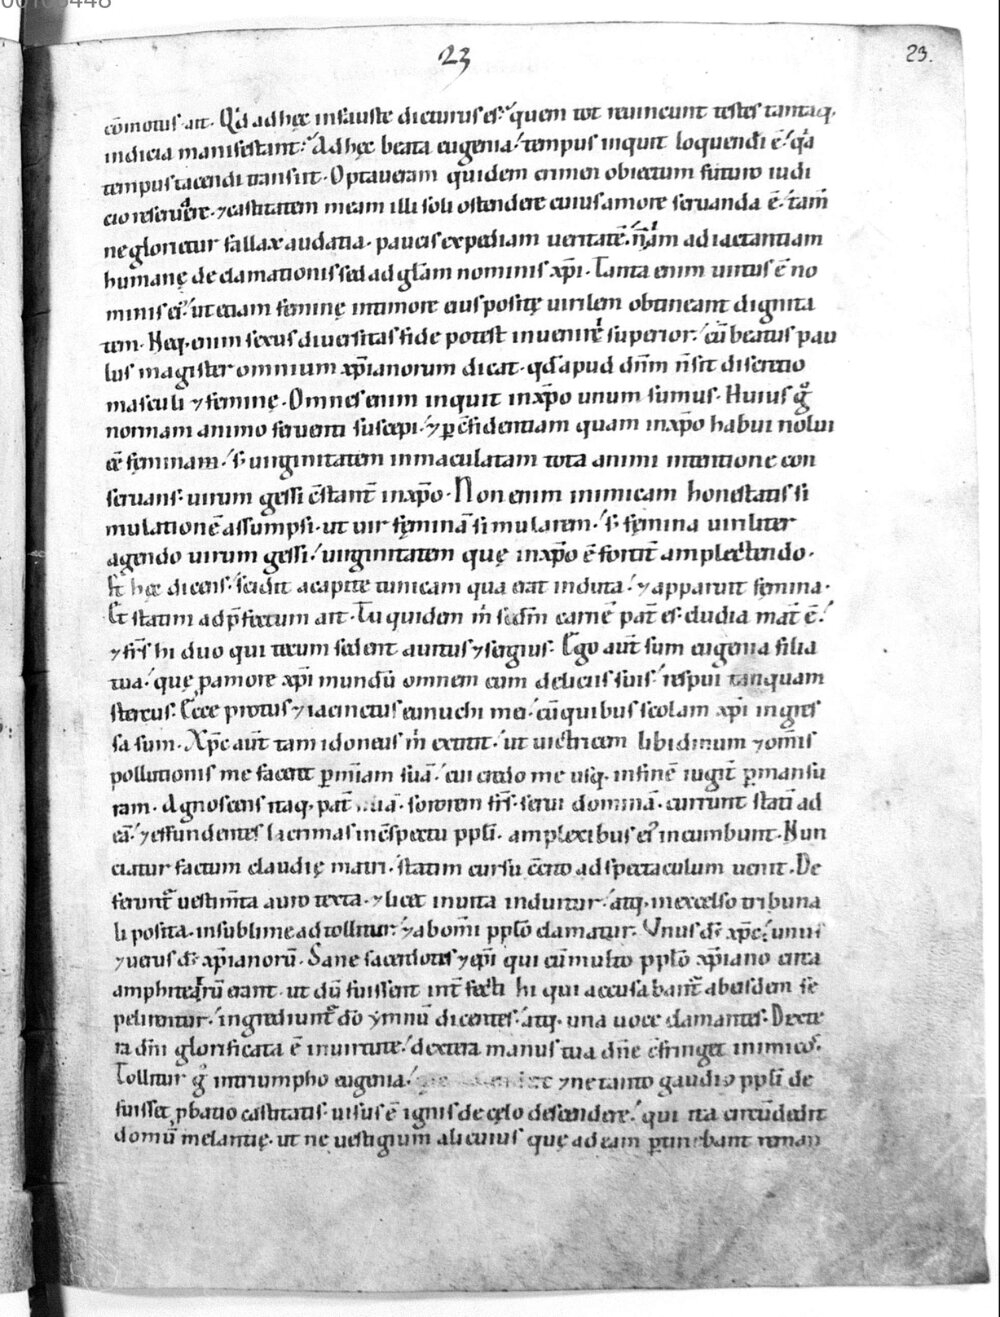 00100448
23
23.
cōmotus ait. Qͥd ad hęc infauste dicturus es? quem tot reuincunt testes tantaq;
indicia manifestant? Ad hęc beata eugenia; tempus inquit loquendi ē; qͥa
tempus tacendi transiit. Optaueram quidem crimen obiectum futuro iudi
cio reseruare. ⁊ castitatem meam illi soli ostendere cuius amore seruanda ē; tam̄
ne glorietur fallax audatia. paucis expediam ueritatē. nā ad iactantiam
humanę declamationis sed ad glām nominis xp̄i. Tanta enim uirtus ē no
minis ei᷒; ut etiam feminę in timore eius positę uirilem obtineant dignita
tem. Neq; enim sexus diuersitas fide potest inuenire superior; cū beatus pau
lus magister omnium xp̄ianorum dicat. qd̄ apud dn̄m n̄ sit discretio
masculi ⁊ feminę. Omnes enim inquit in xp̄o unum sumus. Huius gͦ
normam animo feruenti suscepi. ⁊ p cōfidentiam quam in xp̄o habui nolui
eē feminam; s; uirginitatem inmaculatam tota animi intentione con
seruans; uirum gessi cōstant̄ in xp̄o. Non enim inimicam honestatis si
mulationē assumpsi. ut uir feminā simularem; s; femina uiriliter
agendo uirum gessi; uirginitatem quę in xp̄o ē fortit̄ amplectendo.
Et hęc dicens; scidit a capite tunicam qua erat induta; ⁊ apparuit femina.
Et statim ad p̄fectum ait. Tu quidem m̄ scd̄m carnē pat̄ es. claudia mat̄ ē;
⁊ fr̄s hi duo qui tecum sedent auitus ⁊ sergius. Ego aut̄ sum eugenia filia
tua; quę p amore xp̄i mundū omnem cum deliciis suis; respui tanquam
stercus. Ecce protus ⁊ iacinctus eunuchi mei; cū quibus scolam xp̄i ingres
sa sum. Xp̄c aut̄ tam idoneus m̄ extitit; ut uictricem libidinum ⁊ om̄is
pollutionis me faceret p mīam suā; cui credo me usq; in finē iugit̄ pmansu
ram. Agnoscens itaq; pat̄ sororem fr̄s. serui dominā. currunt statī ad
eā; ⁊ effundentes lacrimas in cōspectu ppl̄i. amplexibus ei᷒ incumbunt. Nun
ciatur factum claudię matri; statim cursu cōcito ad spectaculum uenit. De
ferunt᷑ uestim̄ta auro texta. ⁊ licet inuita induitur; atq; in excelso tribuna
li posita. in sublime ad tollitur; ⁊ ab om̄i ppl̄o clamatur. Vnus dī xp̄c; unus
⁊ uerus dī xp̄ianorū. Sane sacerdotes ⁊ ep̄i qui cū multo ppl̄o xp̄iano circa
amphiteatrū erant. ut dū fuissent int̄fecti hi qui accusabant᷑ ab eisdem se
pelirentur; ingrediunt᷑ dō ymnū dicentes; atq; una uoce clamantes. Dexte
ra dn̄i glorificata ē in uirtute; dextera manus tua dn̄e cōfringet inimicos.
Tollitur gͦ in triumpho eugenia; ⁊ ne tanto gaudio ppl̄i de
fuisset pbatio castitatis. uisus ē ignis de cęlo descendere; qui ita circūdedit
domū melantię. ut ne uestigium alicuius quę ad eam ptinebant reman